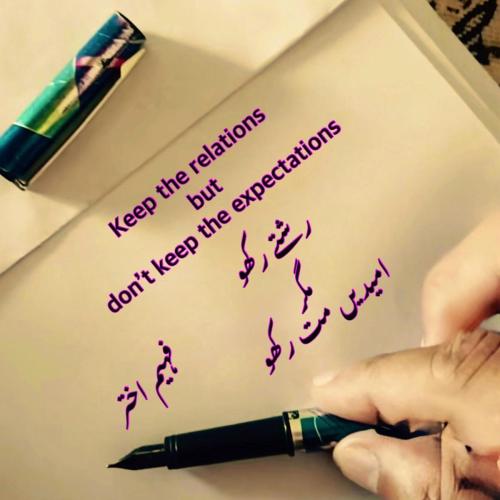 Keep the relations
but
don't keep the expectations
رشتے رکھو
مگر
امیدیں مت رکھو
فہیم اختر